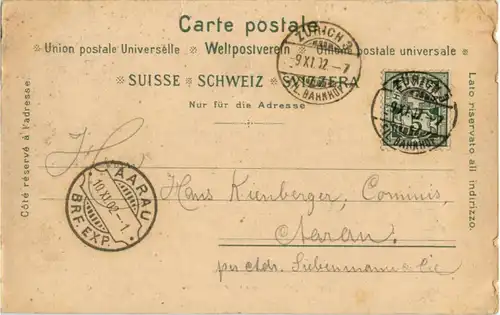 Carte postale
Union postale Universelle ※ Weltpostverein ※ Unione postale universale
※ SUISSE ※ SCHWEIZ ※ SVIZZERA
Nur für die Adresse
Côté réservé à l'adresse.
Lato riservato all indirizzo.
ZÜRICH 3
9.XI.02.-7
BAHNHOF
ZÜRICH 3
BAHNHOF
AARAU
10.XI.02.-1
BRF. EXP.
Hans Kienberger, Commis,
Aarau.
per Adr. Siebenmann & Cie